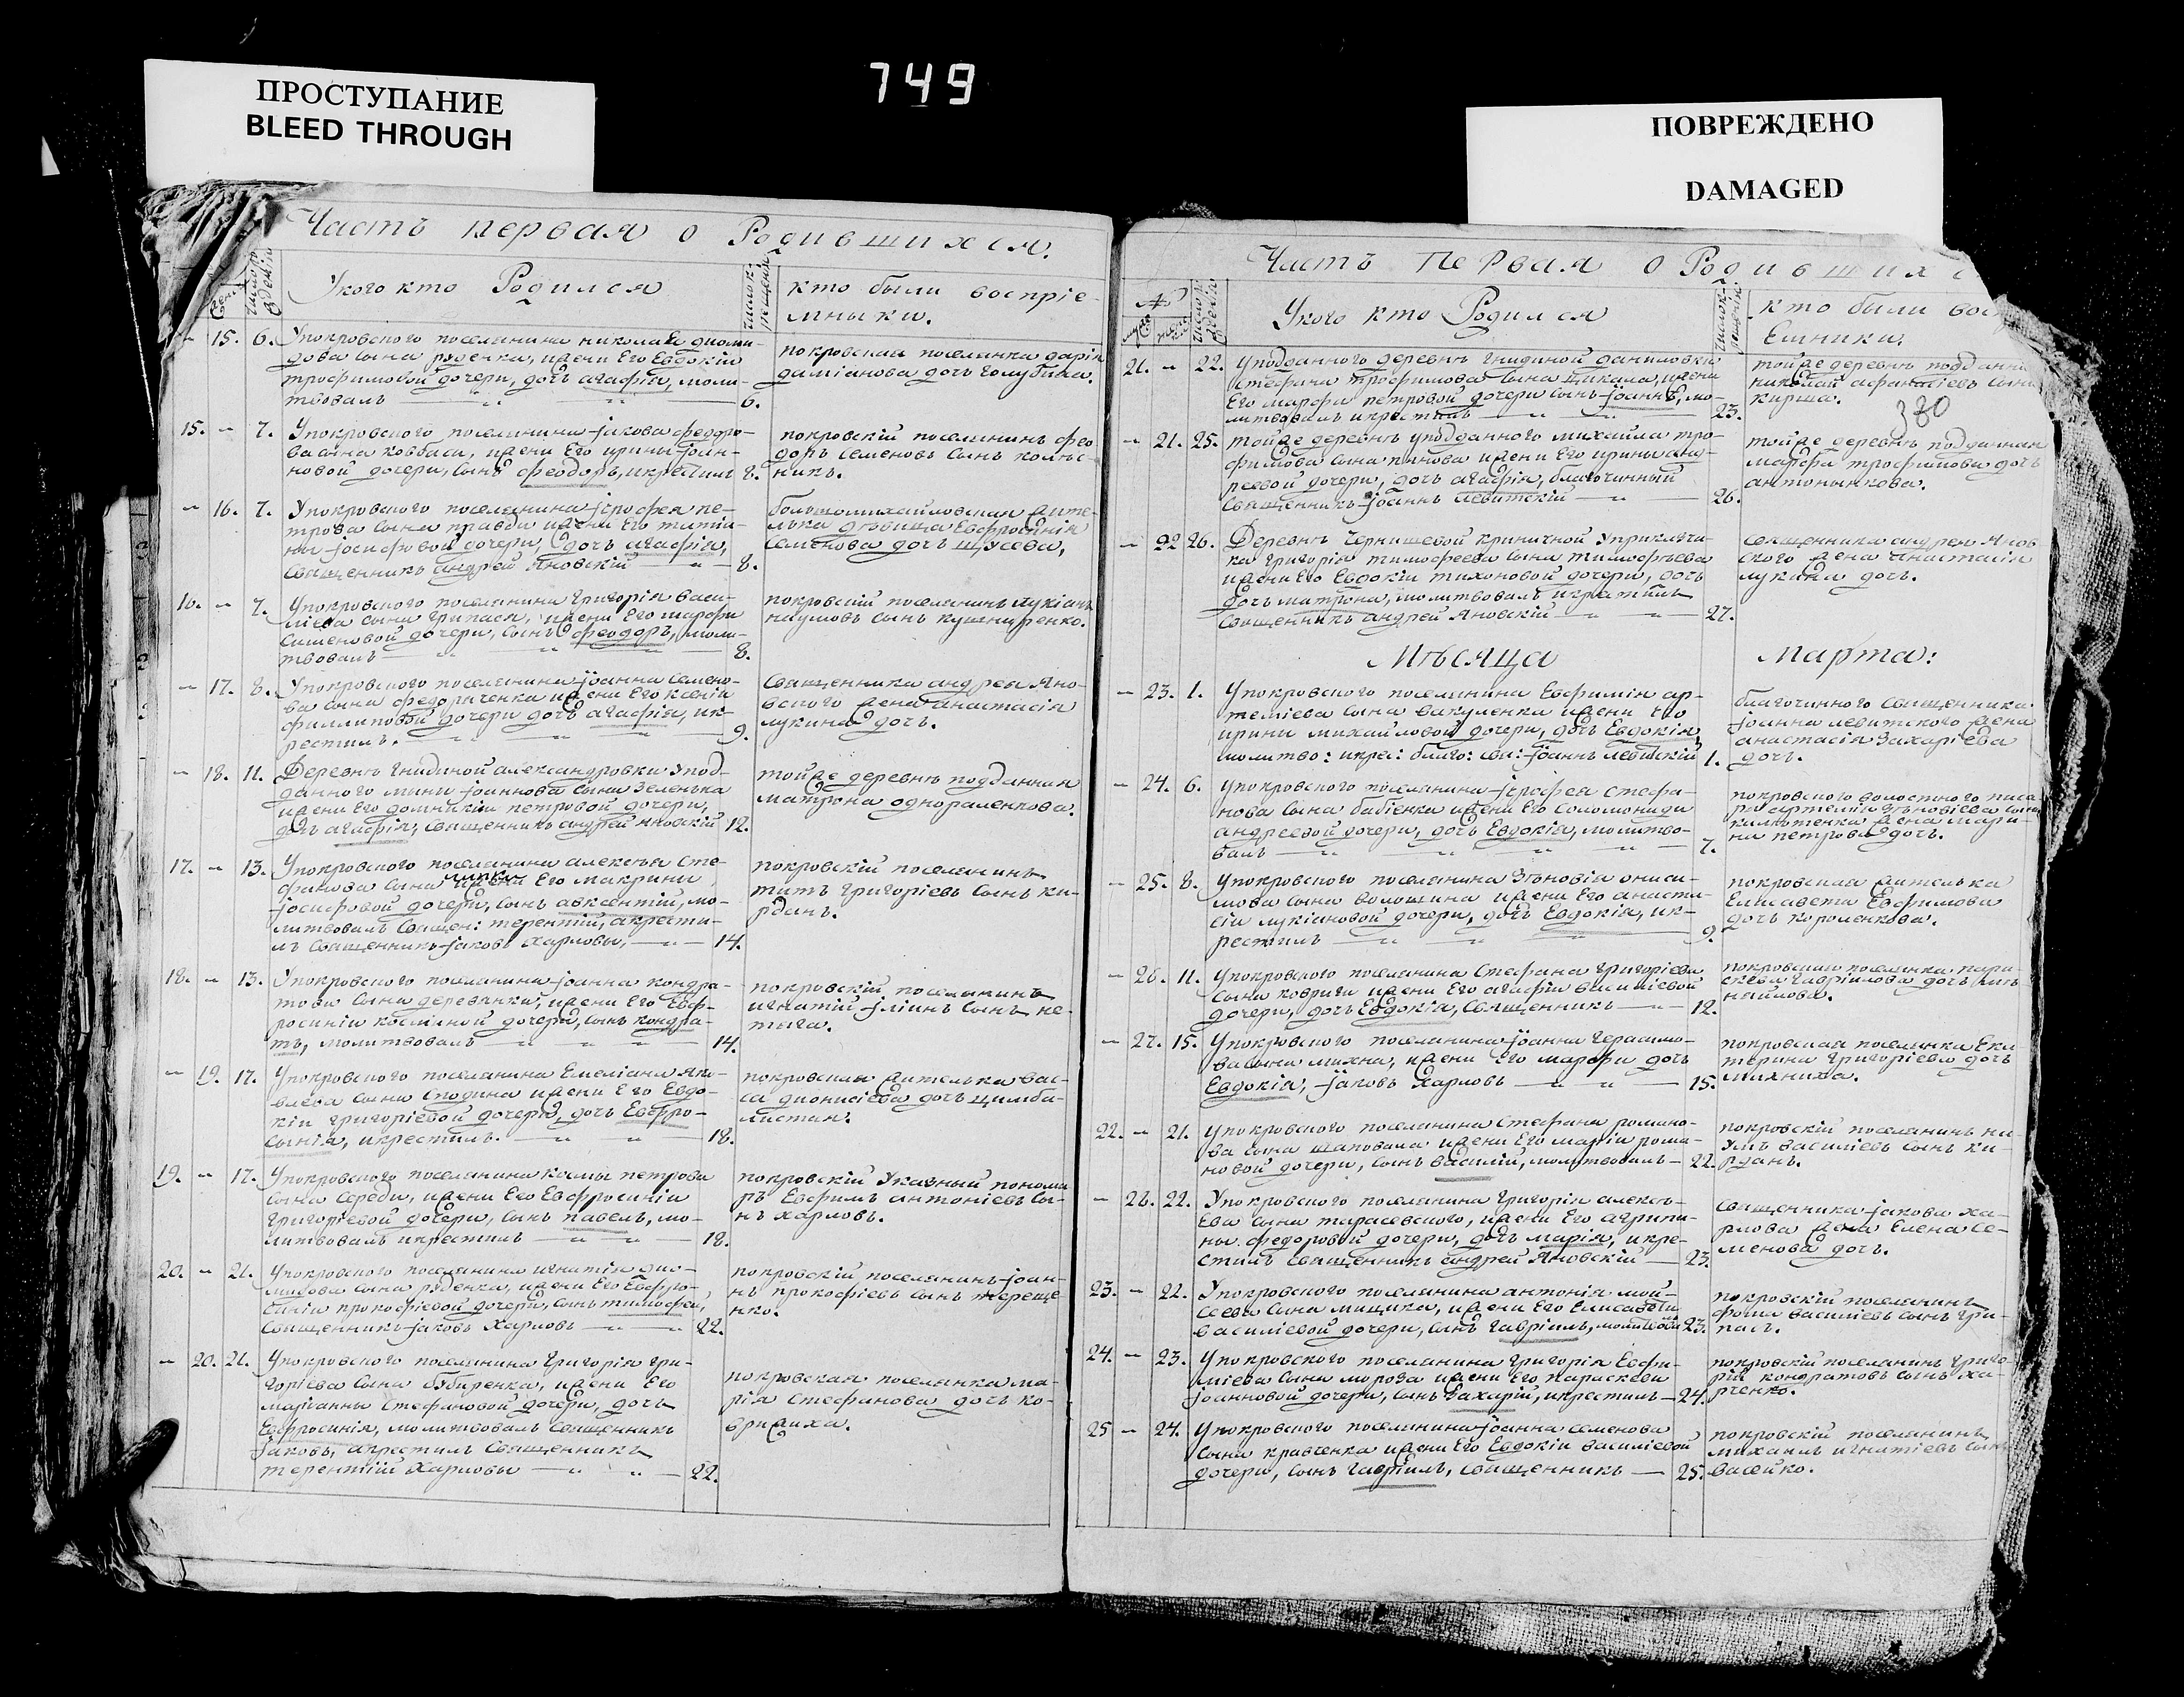 749
ПРОСТУПАНИЕ
BLEED THROUGH
ПОВРЕЖДЕНО
DAMAGED
Часть первая о Родившихся.
У кого кто Родился
кто были воспріе-
мники.
15. 6. У покровского поселянина николая диоми-
дова сына руденка, и жены Его Евдокіи
трофимовой дочери, дочь агафія, моли-
твовалъ 6.
покровская поселянка дарія
даміанова дочь голубина.
15. 7. У покровского поселянина іакова феодо-
ва сына ковбаси, и жены Его ирины іоан-
новой дочери, сынъ феодоръ, и крестилъ 8.
покровскій поселянинъ фео
доръ семеновъ сынъ колѣс-
никъ.
16. 7. У покровского поселянина іерофея пе-
трова сына правди и жены Его татіа-
ны іосифовой дочери, дочь агафія,
священникъ андрей Яновскій 8.
большомихайловская жите-
лька дѣвица Евфросинія
семенова дочь щусева,
16. 7. У покровского поселянина григорія васи-
ліева сына грипася, и жены Его марфы
симеоновой дочери, сынъ феодоръ, моли-
твовалъ 8.
покровскій поселянинъ лукіанъ
наумовъ сынъ кушниренко.
17. 8. У покровского поселянина іоанна семено-
ва сына федориченка и жены Его ксеніи
филлиповой дочери дочь агафія, и к-
рестилъ. 9.
священника андрея Яно-
вского жена анастасія
лукина дочь.
18. 11. Деревнѣ гнидиной александровки у под-
данного мины іоаннова сына зеленька
и жены Его домникіи петровой дочери,
дочь агафія, священникъ андрей яновскій 12.
той же деревнѣ подданная
матрона однораленкова.
17. 13. У покровского поселянина алексѣя сте-
фанова сына липки и жены Его макрины
іосифовой дочери, сынъ авксентій, мо-
литвовалъ священ: терентій, а крести-
лъ священникъ іаковъ харловы, 14.
покровскій поселянинъ
титъ григоріевъ сынъ ки-
рданъ.
18. 13. У покровского поселянина іоанна кондра-
това сына деревянки, и жены Его Евф-
росиніи косминой дочери, сынъ кондра-
тъ, молитвовалъ 14.
покровскій поселянинъ
игнатій іліинъ сынъ не-
тяга.
19. 17. У покровского поселянина Емеліана яко-
влева сына сподина и жены Его Евдо-
кіи григоріевой дочери, дочь Евфро-
сынія, и крестилъ. 18.
покровская жителька вас-
са діонисіева дочь цимба-
листая.
19. 17. У покровского поселянина казмы петрова
сына середы, и жены Его Евфросиніи
григоріевой дочери, сынъ павелъ, мо-
литвовалъ и крестилъ 18.
покровскій Указный понома
ръ Евфимъ антоніевъ сы-
нъ харловъ.
20. 21. У покровского поселянина игнатія дио-
мидова сына руденка, и жены Его Евфро-
синіи прокофіевой дочери, сынъ тимофей,
священникъ іаковъ харловъ 22.
покровскій поселянинъ іоан-
нъ прокофіевъ сынъ тереще
нко.
20. 21. У покровского поселянина григорія гри-
горіева сына бубиренка, и жены Его
маріанны стефановой дочери, дочь
Евфросинія, молитвовалъ священникъ
іаковъ, а крестилъ священникъ
терентій харловы 22.
покровская поселянка ма-
рія стефанова дочь ко-
врижиха.
Часть Первая о Родивших
У кого кто Родился
кто были восп
Емники.
380
21. 22. У подданного деревнѣ гнидиной даниловки
стефана трофимова сына цикала, и жены
Его марфы петровой дочери сынъ іоаннъ, мо-
литвовалъ и крестилъ 23.
той же деревнѣ подданн
николай афанасіевъ сынъ
кирша.
21. 25. той же деревнѣ у подданного михайла тро-
фимова сына панова и жены Его ирины анд-
реевой дочери, дочь агафія, благочинный
священникъ іоаннъ левитскій 26.
той же деревнѣ подданная
марфа трофимова дочь
антонынкова.
22 26. Деревнѣ чернишевой криничной У прикащи-
ка григорія тимофеева сына тимофѣева
и жены Его Евдокіи тихоновой дочери, дочь
дочь матрона, молитвовалъ и крестилъ
священникъ андрей Яновскій 27.
священника андрея Янов
ского жена анастасія
лукина дочь.
Мѣсяца Марта:
23. 1. У покровского поселянина Евфимія ар-
теміева сына вакуленка и жены Его
ирины михайловой дочери, дочь Евдокія,
молитво: и крес: благо: свя: іоаннъ левитскій 1.
благочинного священника
іоанна левитского жена
анастасія захаріева
дочь.
24. 6. У покровского поселянина іерофея стефа-
нова сына бабіенка и жены Его соломониды
андреевой дочери, дочь Евдокія, молитво-
валъ 7.
покровского волостного писа
ря артемія зѣновіева сына
калютенка жена мари-
на петрова дочь.
25. 8. У покровского поселянина Зѣновія ониси-
мова сына волошина и жены Его анаста-
сіи лукіановой дочери, дочь Евдокія, и к-
рестилъ 9.
покровская жителька
Елисавета Евфимова
дочь короленкова.
26. 11. У покровского поселянина стефана григоріева
сына ковриги и жены Его агафіи василіевой
дочери, дочь Евдокія, священникъ 12.
покровская поселянка пара
скева гавріилова дочь
27. 15. У покровского поселянина іоанна герасимо-
ва сына михна, и жены Его марфы дочь
Евдокія, іаковъ харловъ 15.
покровская поселянка Ека
терина григоріева дочь
михниха.
22. 21. У покровского поселянина стефана романо-
ва сына шаповала и жены Его маріи рома-
новой дочери, сынъ василій, молитвовалъ 22.
покровскій поселянинъ на-
умъ василіевъ сынъ ки-
рданъ.
28. 22. У покровского поселянина григорія алексѣ-
Ева сына тарасевского, и жены Его агрипи-
ны федоровой дочери, дочь марія, и кре-
стилъ священникъ андрей Яновскій 23.
священника іакова ха-
рлова жена Елена се-
менова дочь.
23. 22. У покровского поселянина антонія мой-
сеева сына мищика, и жены Его Елисаветы
василіевой дочери, сынъ гавріилъ, молитвова 23.
покровскій поселянинъ
фома василіевъ сынъ гри-
пась.
24. 23. У покровского поселянина григорія Евфи-
міева сына мороза и жены Его параскеви
іоанновой дочери, сынъ Захарій, и крестилъ 24.
покровскій поселянинъ григо
рій кондратовъ сынъ ха-
рченко.
25 24. У покровского поселянина іоанна семенова
сына кравченка и жены Его Евдокіи василіевой
дочери, сынъ гавріилъ, священникъ 25.
покровскій поселянинъ
михаилъ игнатіевъ сынъ
васейко.